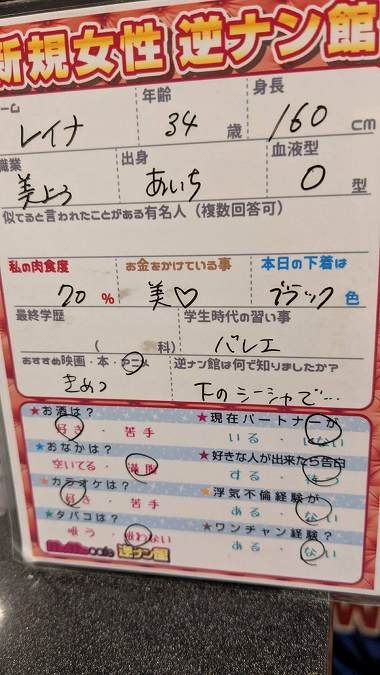 新規女性 逆ナン館
ーム 年齢 身長
レイナ 34 歳 160 cm
職業 出身 血液型
あいち O 型
似てると言われたことがある有名人(複数回答可)
私の肉食度 お金をかけている事 本日の下着は
70 % 美♡ ブラック 色
最終学歴 学生時代の習い事
( 科) バレエ
おすすめ映画・本・アニメ 逆ナン館は何で知りましたか?
きめつ 下のシーシャで…
★お酒は? ★現在パートナーが
好き・苦手 いる・いない
★おなかは? ★好きな人が出来たら告白
空いてる・満腹 する・待つ
★カラオケは? ★浮気不倫経験が
好き・苦手 ある・ない
★タバコは? ★ワンチャン経験?
吸う・吸わない ある・ない
cafe 逆ナン館
W